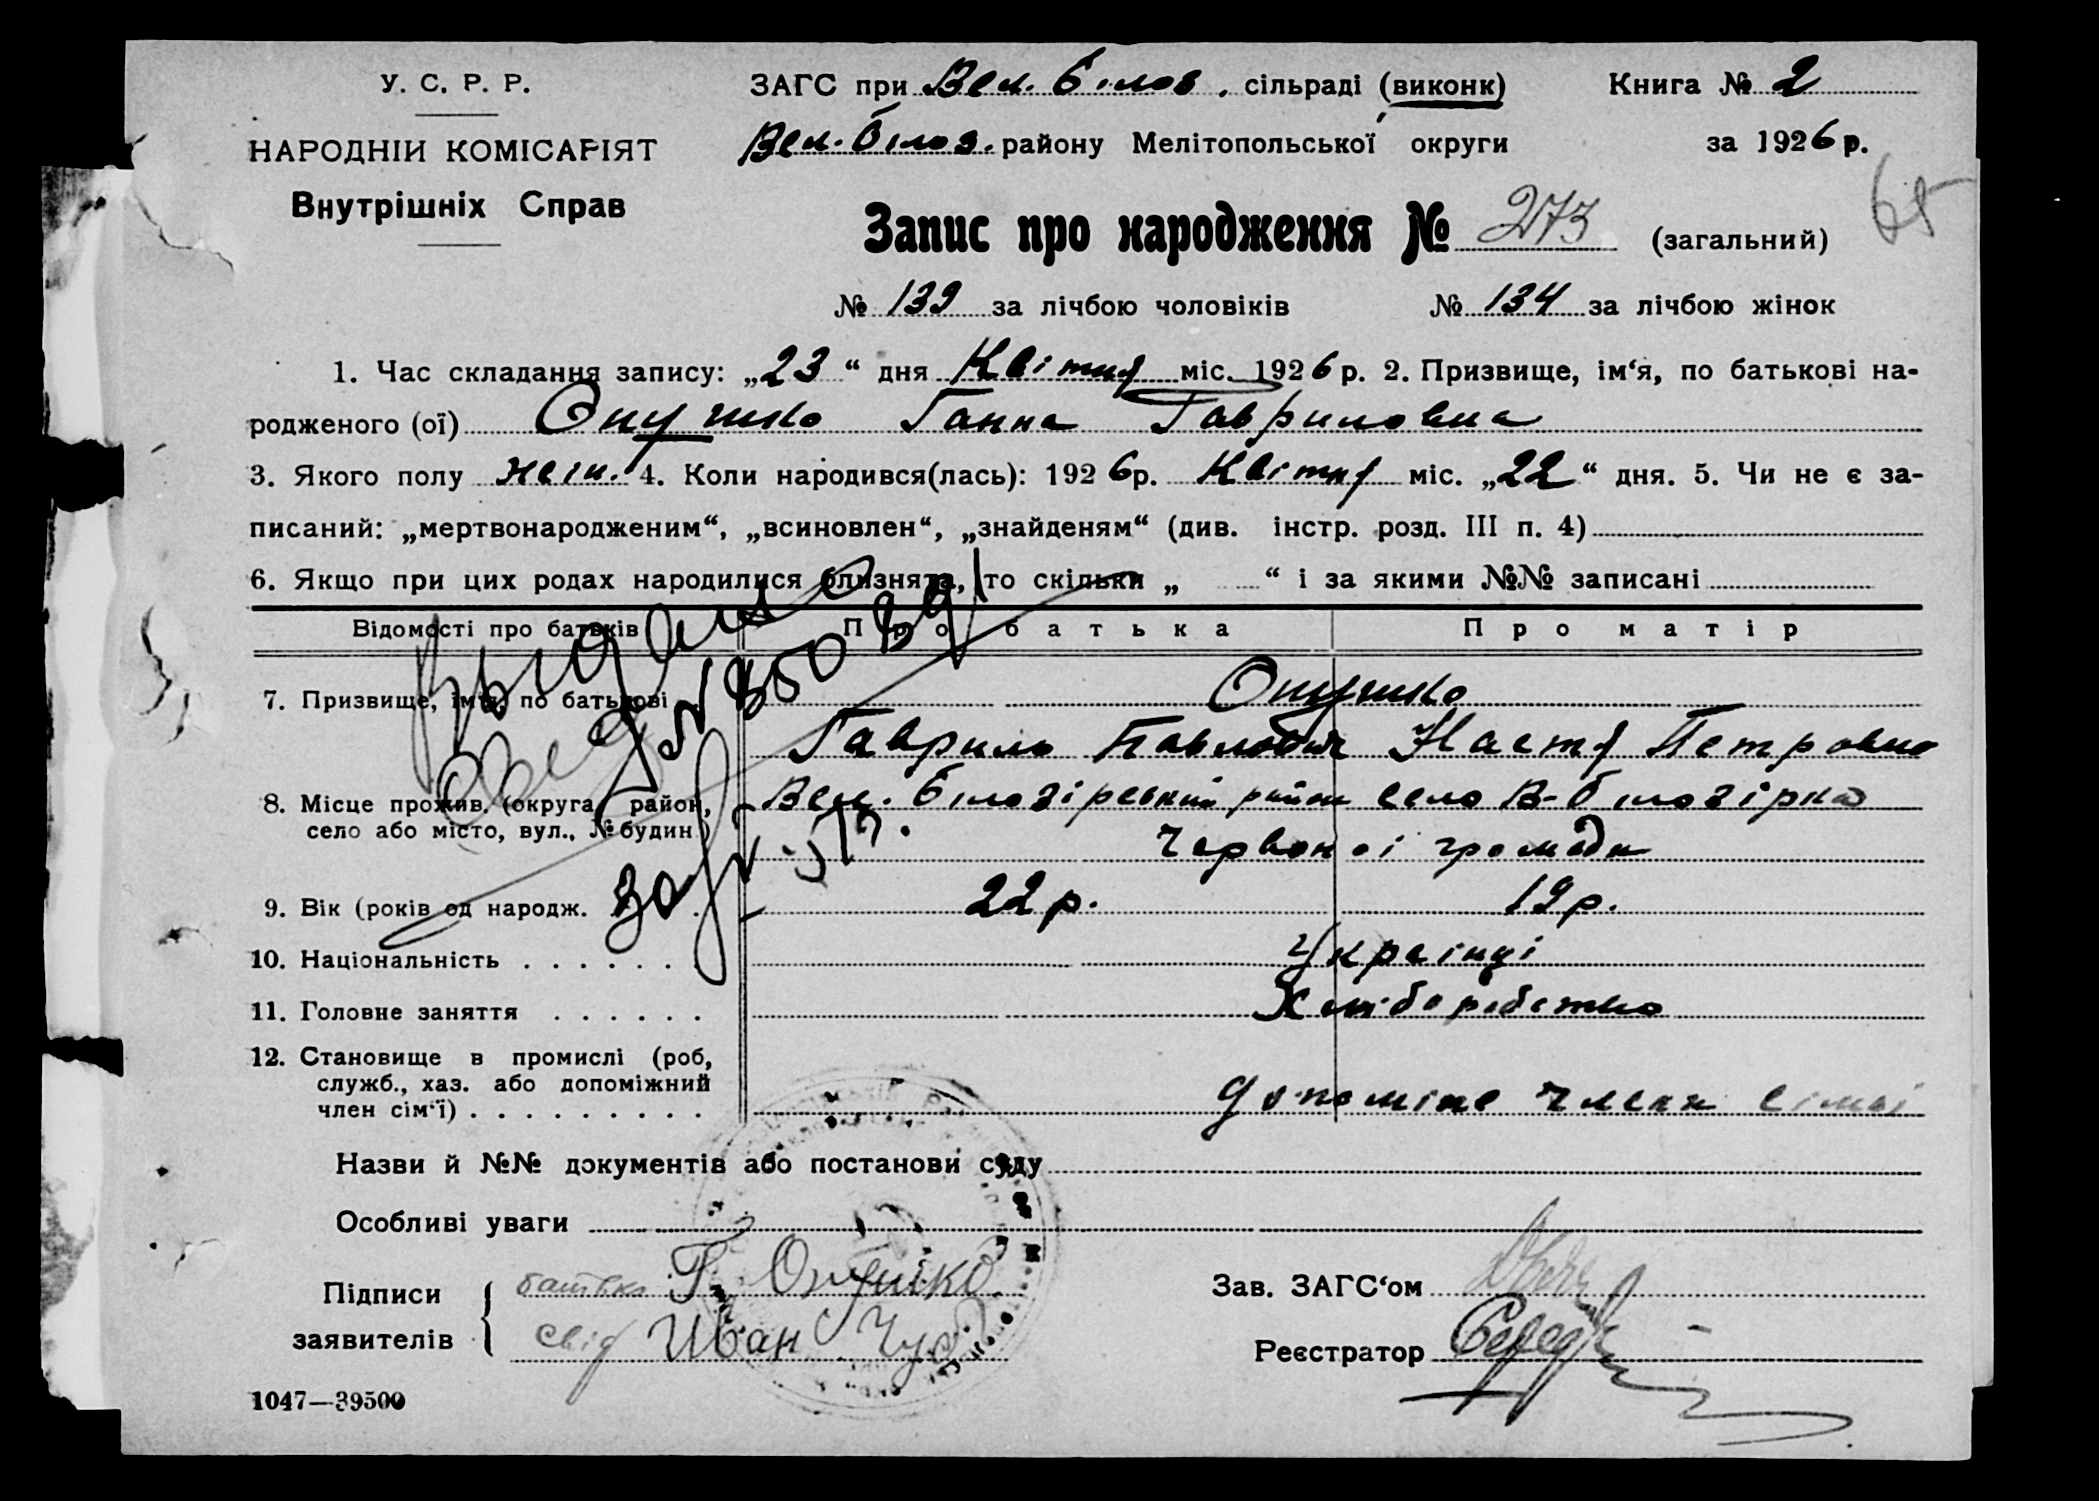 У. С. Р. Р.
НАРОДНІЙ КОМІСАРІЯТ
Внутрішніх Справ
ЗАГС при Вел. Білоз. сільраді (виконк)
Книга № 2
Вел. Білоз. району Мелітопольської округи
за 1926 р.
65
Запис про народження № 273 (загальний)
№ 139 за лічбою чоловіків № 134 за лічбою жінок
1. Час складання запису: „23“ дня Квітня міс. 1926 р. 2. Призвище, ім‘я, по батькові на-
родженого (ої) Опушко Ганна Гавриловна
3. Якого полу жін. 4. Коли народився(лась): 1926 р. Квітня міс. „22“ дня. 5. Чи не є за-
писаний: „мертвонародженим“, „всиновлен“, „знайденям“ (див. інстр. розд. III п. 4)
6. Якщо при цих родах народилися близнята, то скільки „ “ і за якими №№ записані
Відомості про батьків Про батька Про матір
7. Призвище, ім‘я, по батькові Опушко
Гаврило Павлович Настя Петровна
8. Місце прожив. (округа, район, Вел. Білозірський район село В-Білозірка
село або місто, вул., № будин.) Червоної громади
9. Вік (років од народж. 22 р. 19 р.
10. Національність . . . . . . Українці
11. Головне заняття . . . . . . Хліборобство
12. Становище в промислі (роб,
служб., хаз. або допоміжний
член сім‘ї) . . . . . . . . . допоміже член сімьі
Выдано
Назви й №№ документів або постанови суду
Особливі уваги
Підписи батько Г. Опушко
заявителів свід Иван
Зав. ЗАГС‘ом
Реєстратор
1047—39500